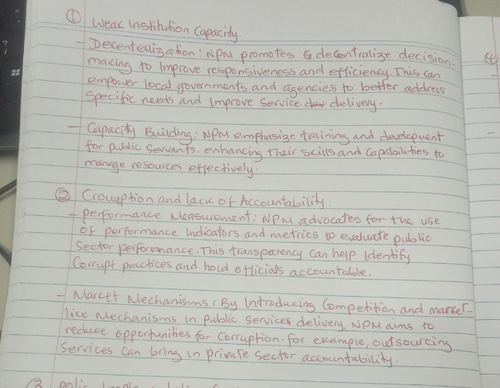 ① Weak institution Capacity.
- Decentralization: NPM promotes & decentralize decision-
making to improve responsiveness and efficiency. This can
empower local governments and agencies to better address
specific needs and improve service delivery.
- Capacity Building: NPM emphasize training and development
for public servants, enhancing their skills and capabilities to
manage resources effectively.
② Crouuption and lack of Accountability.
- Performance Measurement: NPM advocates for the use
of performance indicators and metrics to evaluate public
sector performance. This transparency can help identify
corrupt practices and hold officials accountable.
- Market Mechanisms: By introducing competition and market-
like mechanisms in public services delivery, NPM aims to
reduce opportunities for corruption. for example, outsourcing
services can bring in private sector accountability.
④